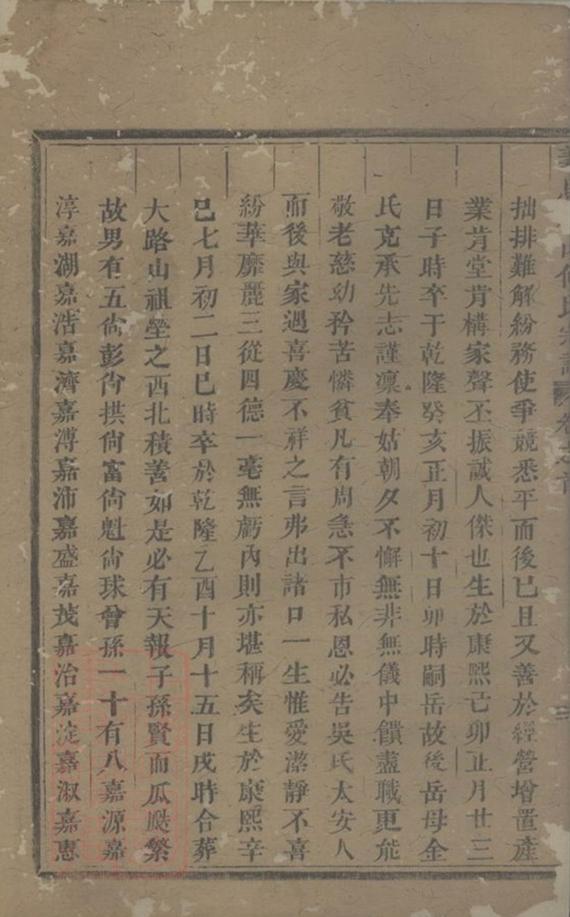 何氏宗譜 卷之首
拙排難解紛務使爭競悉平而後已且又善於經營增置產
業肯堂肯構家聲丕振誠人傑也生於康熙己卯正月廿三
日子時卒于乾隆癸亥正月初十日卯時嗣岳故後岳母金
氏克承先志謹凜奉姑朝夕不懈無非無儀中饋盡職更能
敬老慈幼矜苦憐貧凡有周急不市私恩必告吳氏太安人
而後與家遇喜慶不祥之言弗出諸口一生惟愛潔靜不喜
紛華靡麗三從四德一毫無虧內則亦堪稱矣生於康熙辛
巳七月初二日巳時卒於乾隆乙酉十月十五日戌時合葬
大路山祖塋之西北積善如是必有天報子孫賢而瓜瓞繁
故男有五尙彭尙拱尙富尙魁尙球曾孫一十有八嘉源嘉
淳嘉湖嘉浩嘉濟嘉溥嘉沛嘉盛嘉茂嘉治嘉淀嘉淑嘉惠